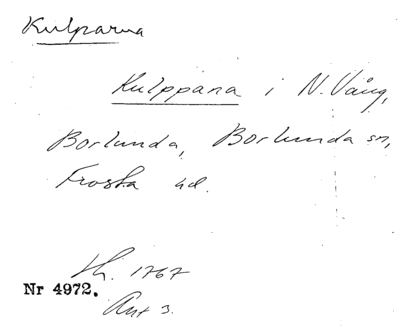 Kulparna
Kulppana i N. Vång,
Borlunda, Borlunda sn,
Frosta hd.
Lh. 1767
Nr 4972.
Akt 3.